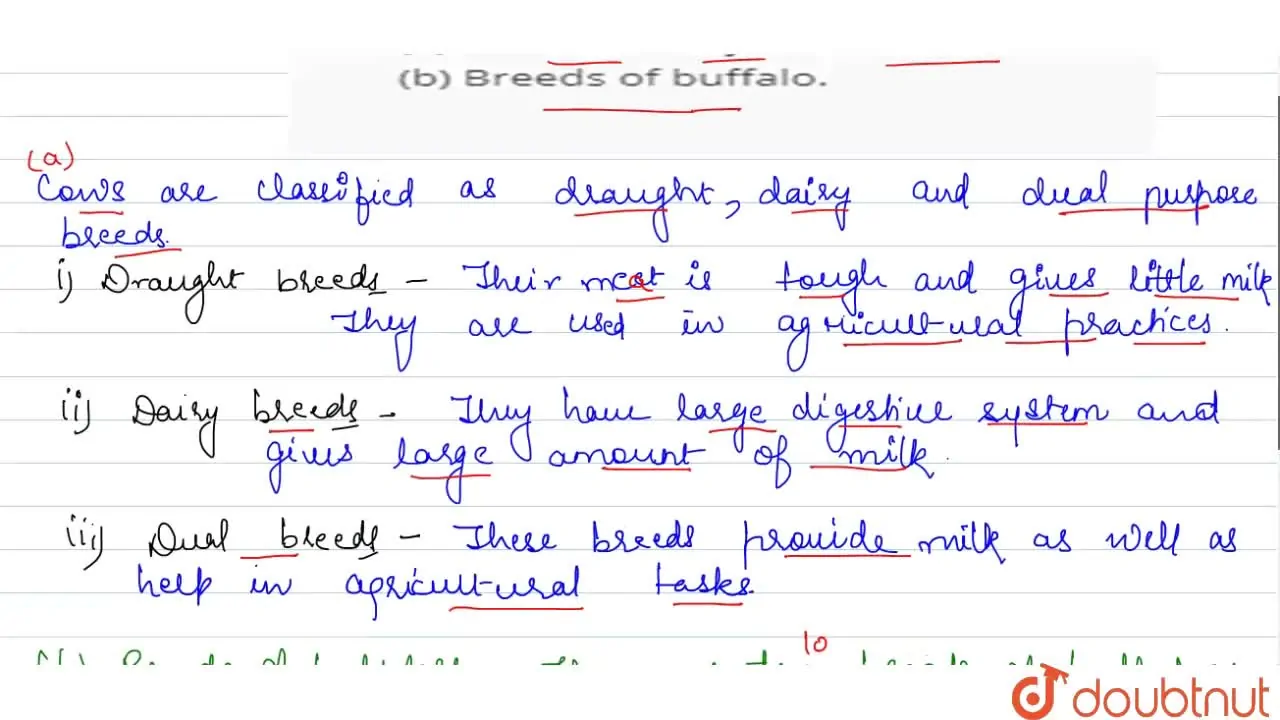 (b) Breeds of buffalo.
(a)
Cows are classified as draught, dairy and dual purpose
breeds.
i) Draught breeds - Their meat is tough and gives little milk
They are used in agricultural practices.
ii) Dairy breeds - They have large digestive system and
gives large amount of milk.
iii) Dual breeds - These breeds provide milk as well as
help in agricultural tasks.
10
doubtnut